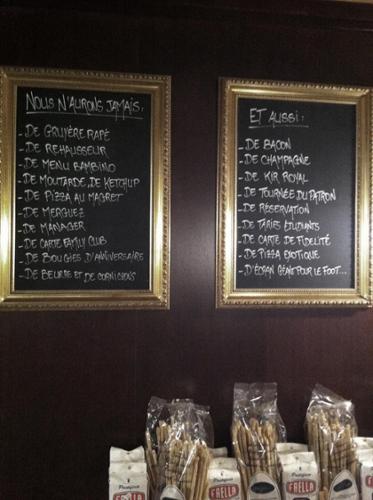 NOUS N'AURONS JAMAIS:
-DE GRUYÈRE RAPÉ
-DE REHAUSSEUR
-DE MENU BAMBINO
-DE MOUTARDE, DE KETCHUP
-DE PIZZA AU MAGRET
-DE MERGUEZ
-DE MANAGER
-DE CARTE FAMILY CLUB
-DE BOUGIES D'ANNIVERSAIRE
-DE BEURRE ET DE CORNICHONS
ET AUSSI:
-DE BACON
-DE CHAMPAGNE
-DE KIR ROYAL
-DE TOURNÉE DU PATRON
-DE RÉSERVATION
-DE TARIFS ÉTUDIANTS
-DE CARTE DE FIDÉLITÉ
-DE PIZZA EXOTIQUE
-D'ÉCRAN GÉANT POUR LE FOOT...
FAELLA
FAELLA
FAELLA